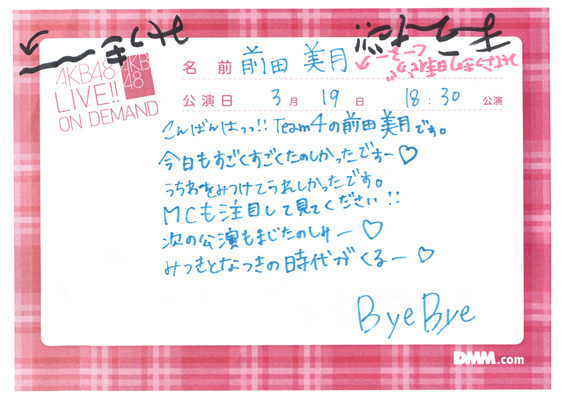 AKB48
LIVE!!
ON DEMAND
AKB
48
名 前 前田 美月
公演日 3月 19日 18:30 公演
こんばんはっっ!! Team4の前田美月です。
今日もすごくすごくたのしかったですー♡
うちわをみつけてうれしかったです。
MCも注目して見てください!!
次の公演もまじたのしみー ♡
みつきとなつきの時代がくるー ♡
ByeBye
DMM.com